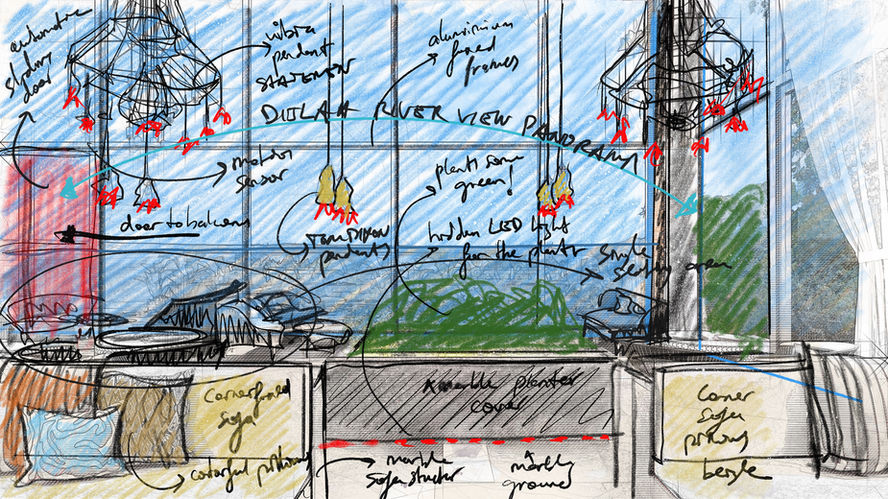 automatic
sliding
door
vibia
pendant
STATEMENT
aluminium
fixed
frames
DIJLAH RIVER VIEW PANORAMA
motion
sensor
plant some
green!
door to balcony
TOM DIXON
pendants
hidden LED light
for the plants
single
seating area
marble planter
cover
Corner fixed
Sofa
Corner
Sofa
pillows
beige
colorful pillows
marble
sofa structur
marble
ground